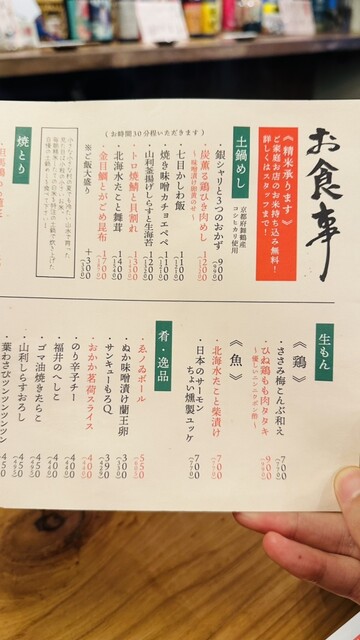 お食事
《精米承ります》
ご家庭お店のお米持ち込み無料!
詳しくはスタッフまで!
土鍋めし
京都府舞鶴産
コシヒカリ使用
(お時間30分程いただきます)
・銀シャリと3つのおかず
・炭薫る鶏ひき肉めし 1200
〜味噌漬け卵黄のせ〜
・七目かしわ飯 1100
・焼き味噌カチョエペペ 1100
・山利釜揚げしらすと生海苔 1200
・トロ焼鯖と貝割れ 1300
・北海水たこと舞茸 1400
・金目鯛とがごめ昆布 1700
※ご飯大盛り +300
焼とり
生もん
《鶏》
・ささみ梅こんぶ和え 700
・ひね鶏もも肉タタキ 900
〜優しいニンニクポン酢〜
《魚》
・北海水たこと柴漬け 700
・日本のサーモン
ちょい燻製ユッケ 700
肴・逸品
・ゑノゐボール 550
・ぬか味噌漬け蘭王卵 300
・サンキューもろQ、 390
・おかか茗荷スライス 400
・のり辛子チー 400
・福井のへしこ 400
・ゴマ油焼きたらこ 450
・山利しらすおろし 450
・葉わさびツンツンツンツン 450